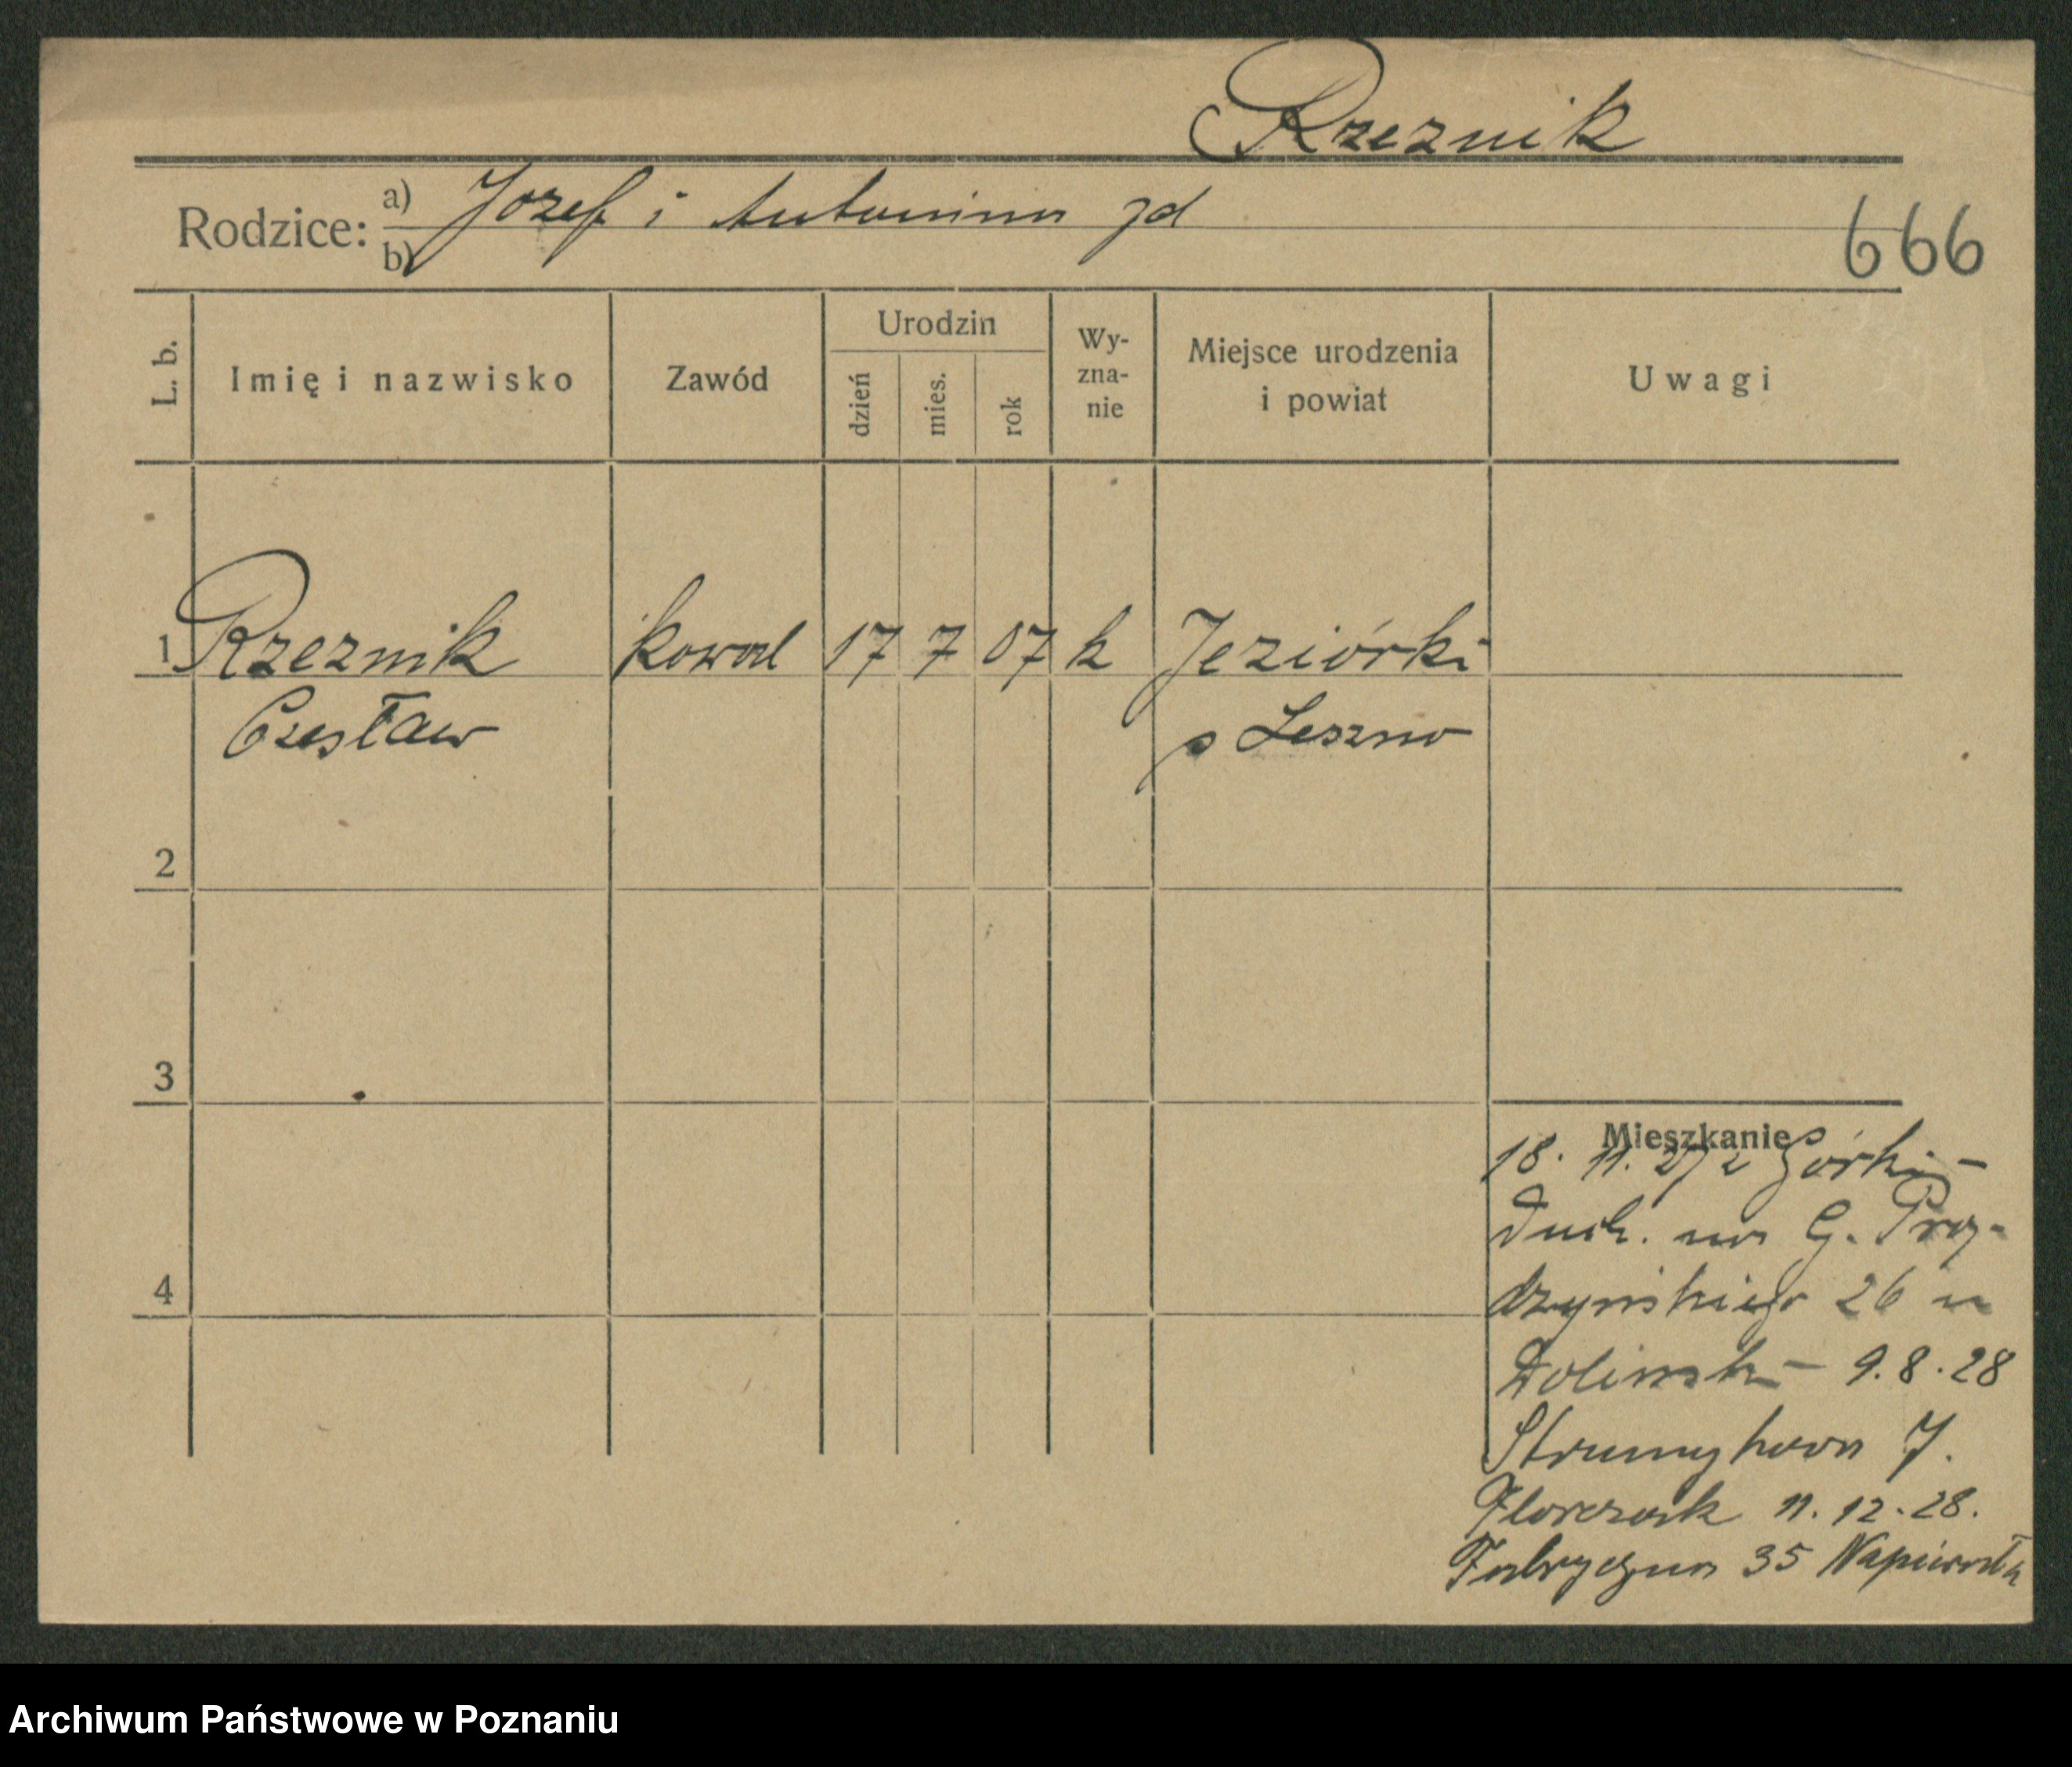 Rzeznik
Rodzice: a) Jozef i Antonina zd
b)
666
L. b.
Imię i nazwisko
Zawód
Urodzin
dzień
mies.
rok
Wy-
zna-
nie
Miejsce urodzenia
i powiat
Uwagi
1 Rzeznik kowal 17 7 07 k Jeziórki
Czesław p Leszno
2
3
4
Mieszkanie
18. 11. 27 z Górki
Duch. na G.
26 u
9.8.28
Strumykowa 7.
Florczak 11.12.28.
Fabryczna 35
Archiwum Państwowe w Poznaniu